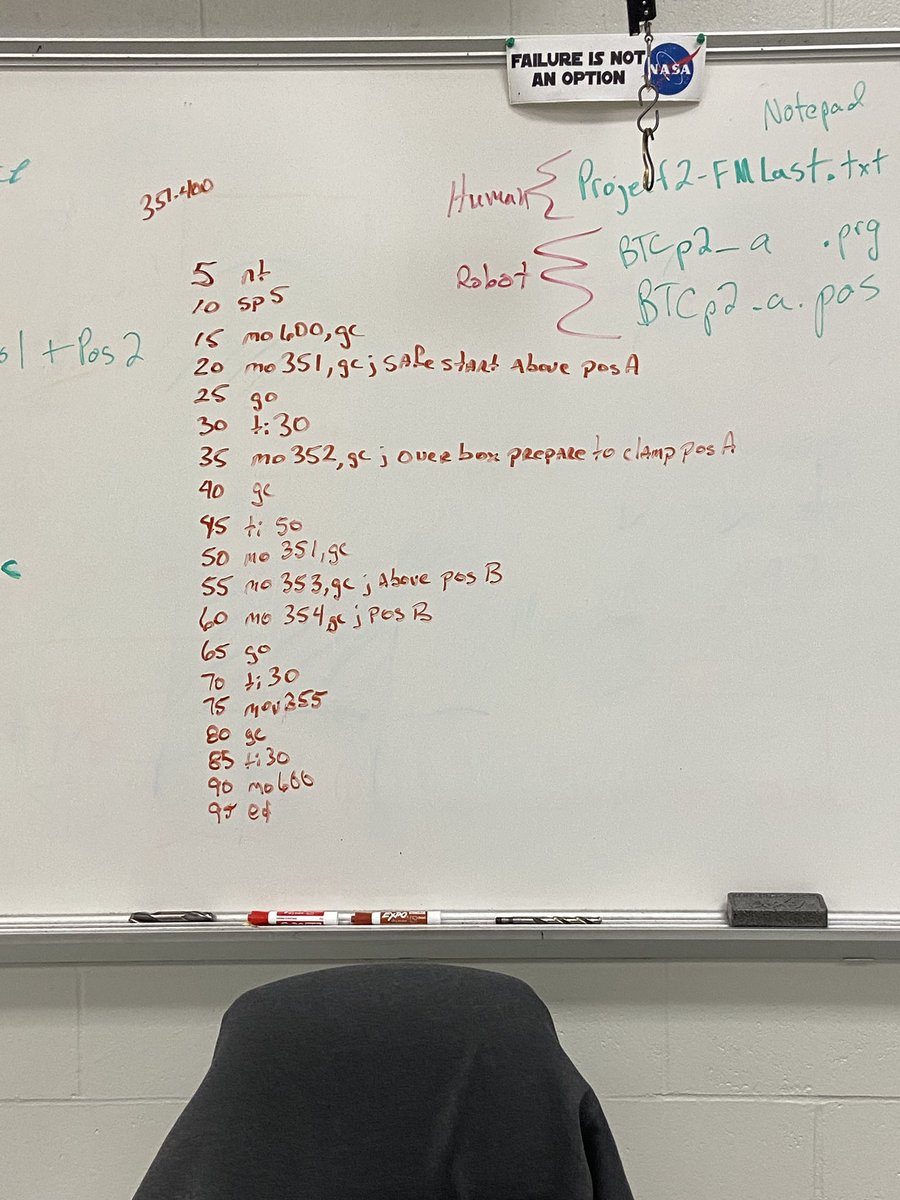 FAILURE IS NOT
AN OPTION
NASA
Notepad
Human
Project2-FMLast.txt
Robot
BTCp2_a .prg
BTCp2_a.pos
351-400
1 + Pos2
5 nt
10 sp5
15 mo600,gc
20 mo351,gc; SAFe StARt Above posA
25 go
30 ti30
35 mo352,gc; over box prepare to clamp posA
40 gc
45 ti 50
50 mo 351,gc
55 mo 353,gc; Above pos B
60 mo 354,gc; Pos B
65 go
70 ti30
75 mov355
80 gc
85 ti30
90 mo600
95 ed
EXPO